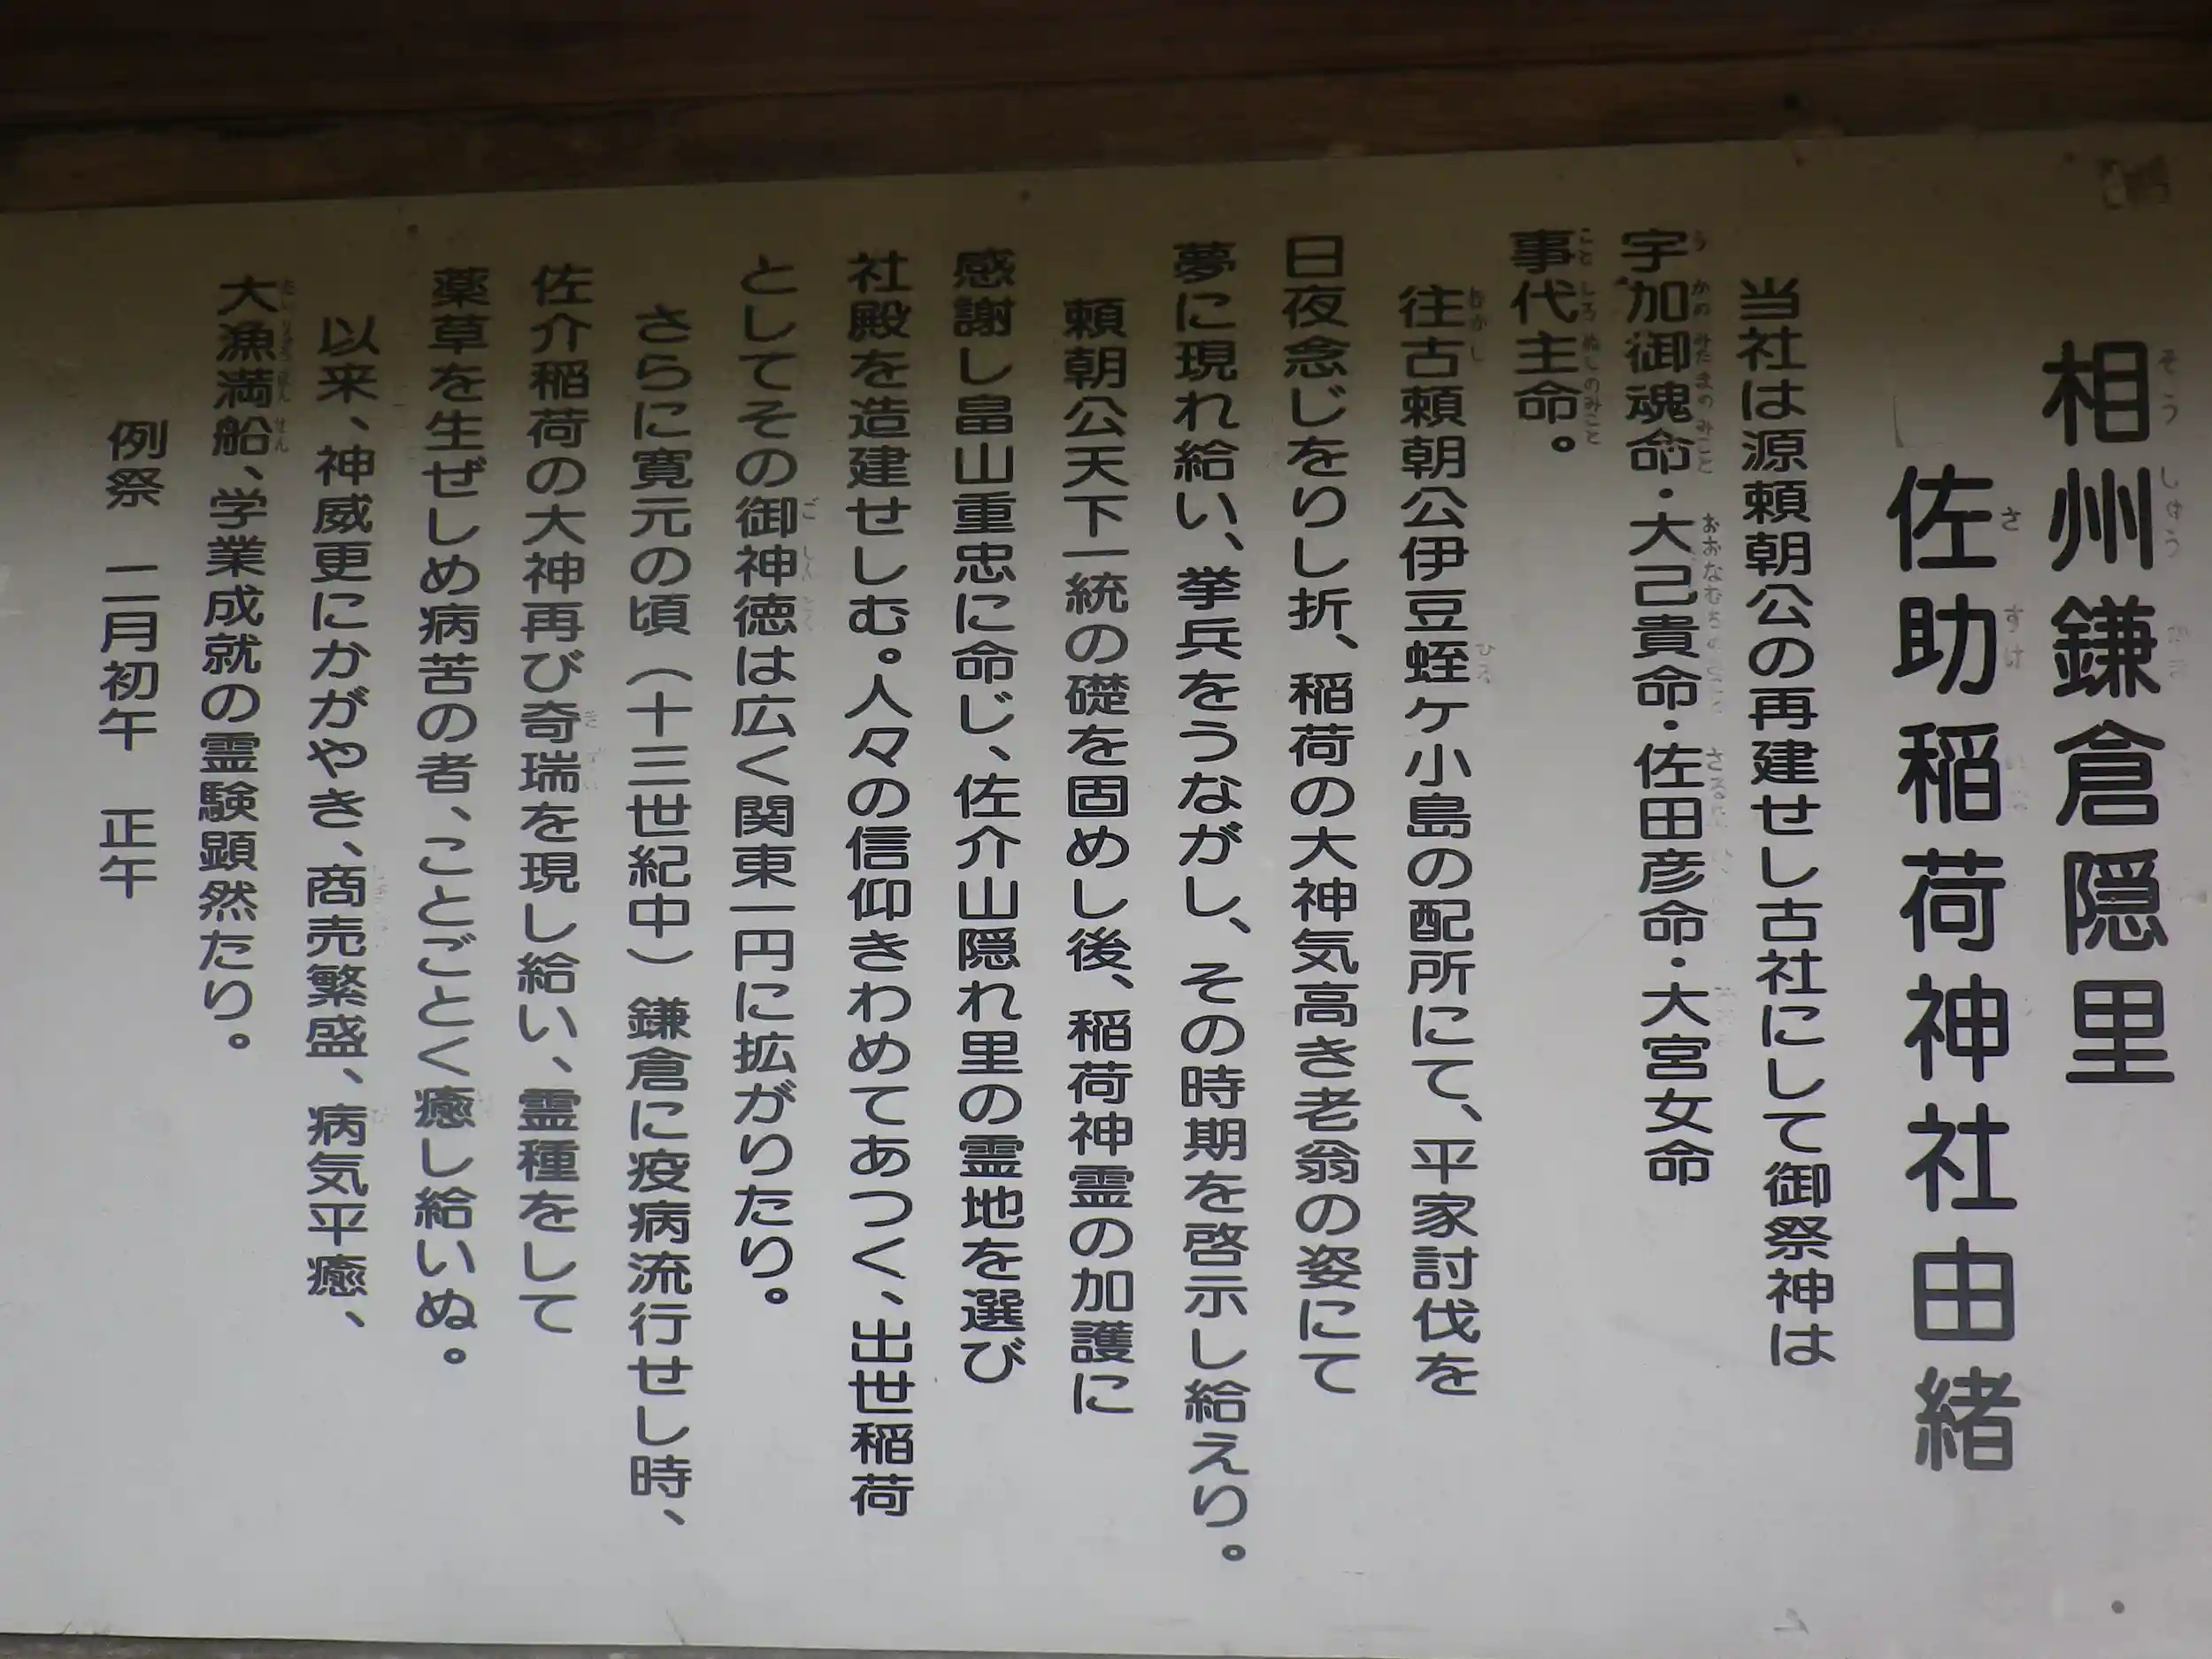 相州鎌倉隠里
佐助稲荷神社由緒
当社は源頼朝公の再建せし古社にして御祭神は
宇加御魂命・大己貴命・佐田彦命・大宮女命
事代主命。
往古頼朝公伊豆蛭ケ小島の配所にて、平家討伐を
日夜念じをりし折、稲荷の大神気高き老翁の姿にて
夢に現れ給い、挙兵をうながし、その時期を啓示し給えり。
頼朝公天下一統の礎を固めし後、稲荷神霊の加護に
感謝し畠山重忠に命じ、佐介山隠れ里の霊地を選び
社殿を造建せしむ。人々の信仰きわめてあつく、出世稲荷
としてその御神徳は広く関東一円に拡がりたり。
さらに寛元の頃（十三世紀中）鎌倉に疫病流行せし時、
佐介稲荷の大神再び奇瑞を現し給い、霊種をして
薬草を生ぜしめ病苦の者、ことごとく癒し給いぬ。
以来、神威更にかがやき、商売繁盛、病気平癒、
大漁満船、学業成就の霊験顕然たり。
例祭　二月初午　正午